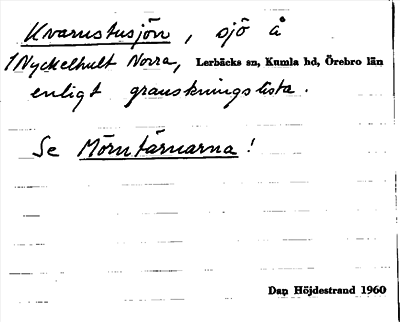 Kvarnstusjön, sjö å
1 Nyckelhult Norra, Lerbäcks sn, Kumla hd, Örebro län
enligt granskningslista.
Se Mörntärnarna!
Dan Höjdestrand 1960